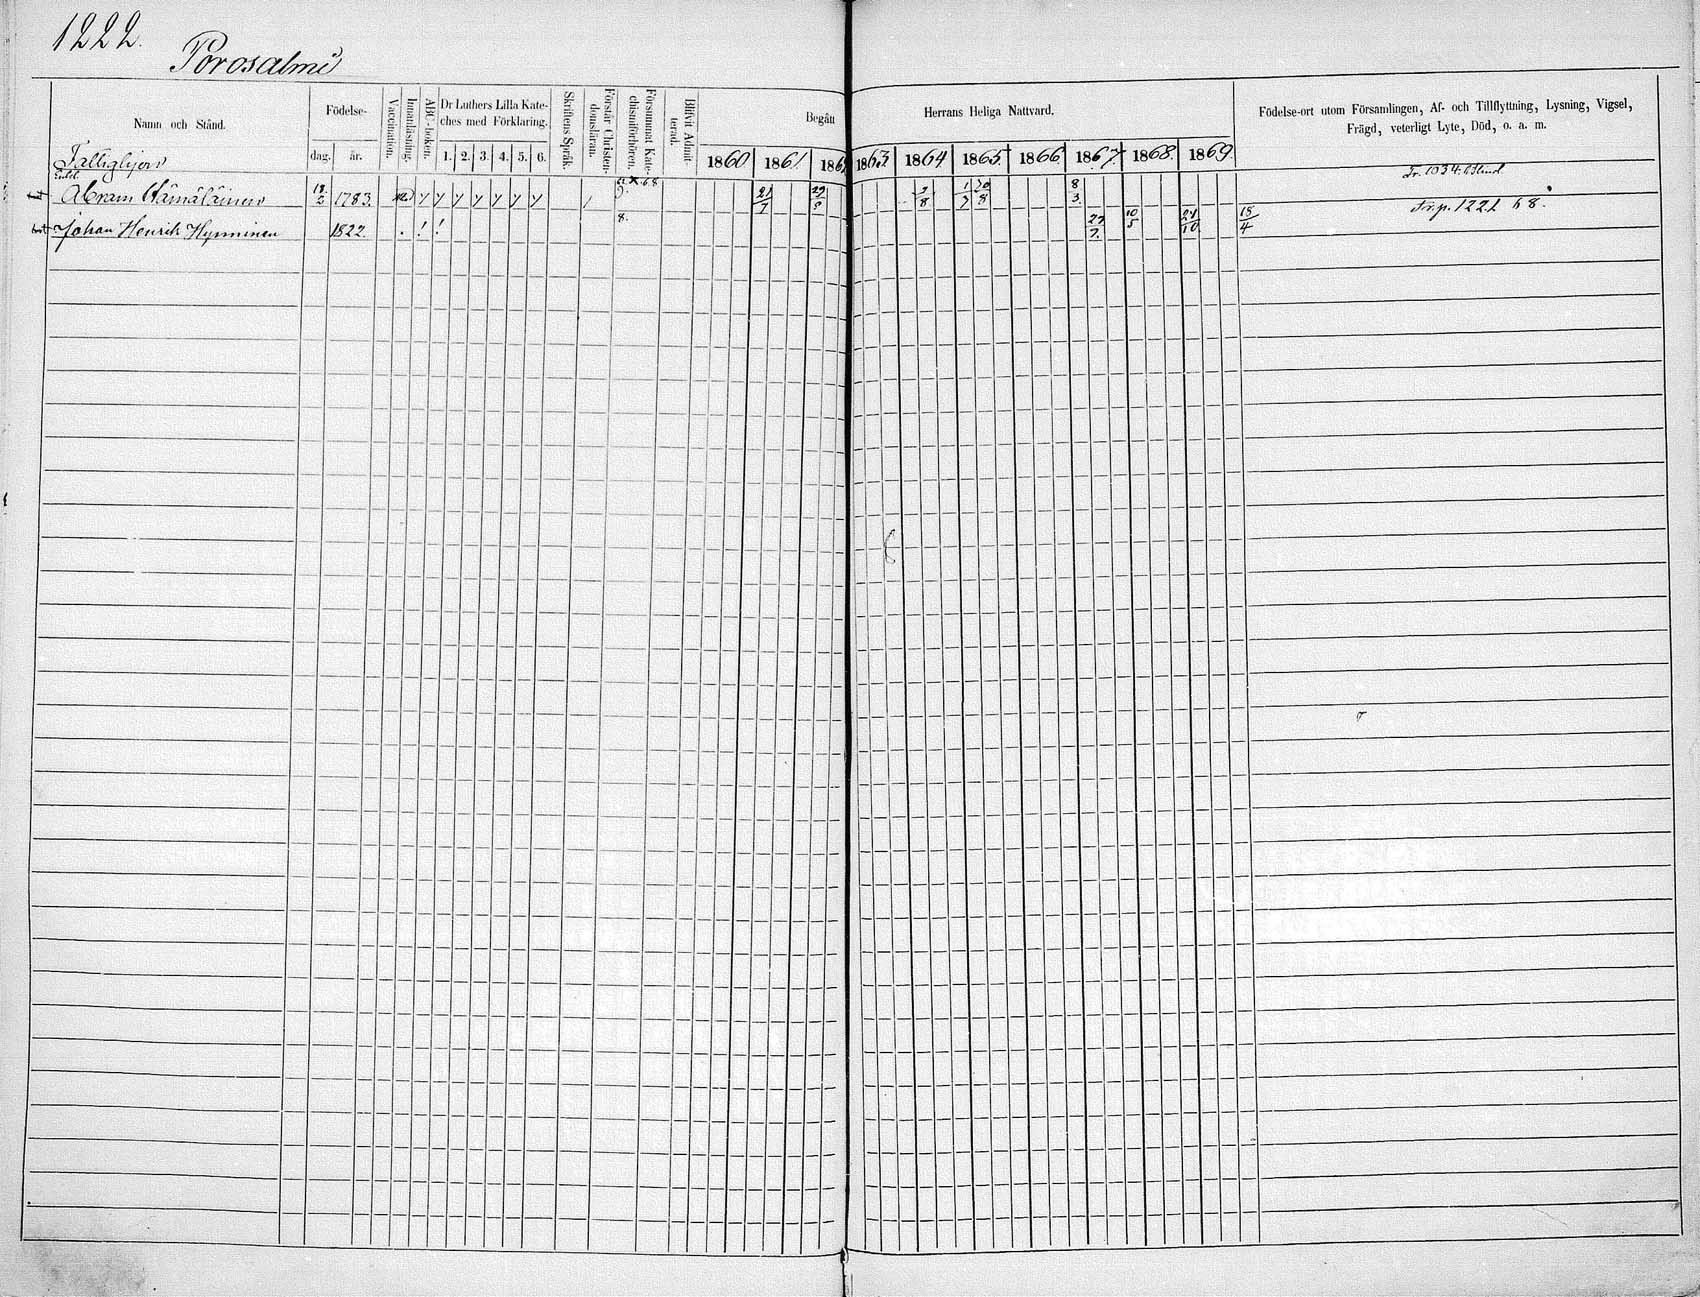 1222.
Porosalmi
Namn och Stånd.
Födelse-
dag. år.
Vaccination.
Innanläsning.
ABC-boken.
Dr Luthers Lilla Kate-
ches med Förklaring.
1. 2. 3. 4. 5. 6.
Skriftens Språk.
Förstår Christen-
domsläran.
Försummat Kate-
chismiförhören.
Blifvit Admit-
terad.
Begått Herrans Heliga Nattvard.
1860 1861 186 1863 1864 1865 1866 1867 1868 1869
Födelse-ort utom Församlingen, Af- och Tillflyttning, Lysning, Vigsel,
Frägd, veterligt Lyte, Död, o. a. m.
Fattighjon
Abram Hämäläinen 18/2 1783. 9. 21/7 29/8 1/7 30/8 8/3 Fr. 1034. blind
Johan Henrik Hynninen 1822. 8. 10/5 21/10 18/4 Fr. p. 1221 68.